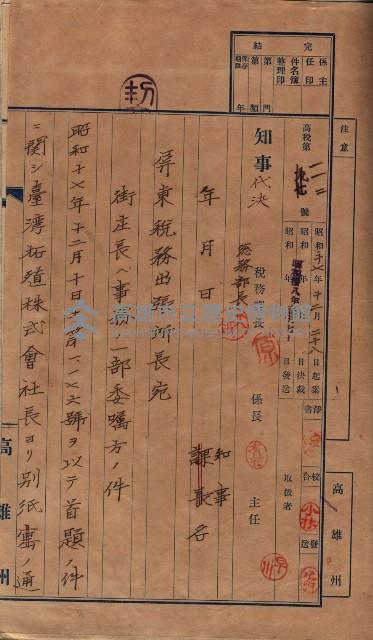 完結
係主任印
件名簿整理印
第 門
第 類
保存期限 年
注意
高雄州
高税第 號
昭和十七年十二月二十八日起案
昭和 年 日決裁
昭和 年 日發送
淨書
校合
小林
發送
取扱者
知事代決
總務部長
税務課長
係長
主任
年 月 日
知事
課長名
屏東税務出張所長宛
街庄長ヘ事務一部委囑方ノ件
昭和十七年十二月十日
號ヲ以テ首題ノ件
ニ関シ臺湾拓殖株式會社長ヨリ別紙寫ノ通
高雄州